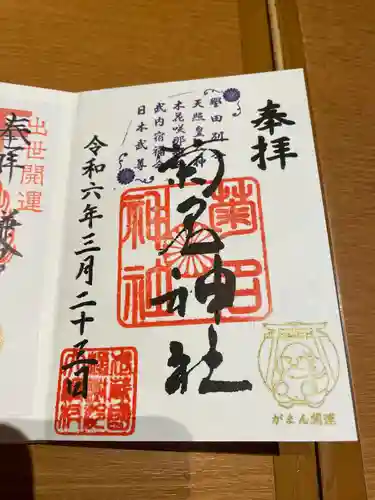 奉拝
誉田別
天照皇 神
木花咲耶
武内宿禰命
日本武尊
菊名神社
菊名
神社
令和六年三月二十五日
がまん開運
出世開運
奉拝